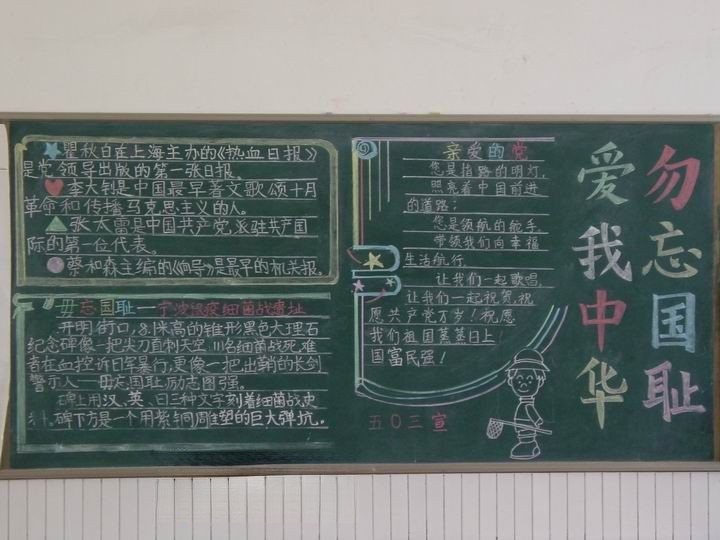 瞿秋白在上海主办的《热血日报》
是党领导出版的第一张日报。
李大钊是中国最早著文歌颂十月
革命和传播马克思主义的人。
张太雷是中国共产党,派驻共产国
际的第一位代表。
蔡和森主编的《向导》是最早的机关报。
毋忘国耻——宁波鼠疫细菌战遗址
开明街口,8.1米高的锥形黑色大理石
纪念碑像一把尖刀直刺天空,111名细菌战死难
者在血控诉日军暴行,更像一把出鞘的长剑
警示人——毋忘国耻,励志图强。
碑上用汉、英、日三种文字刻着细菌战史
料。碑下方是一个用紫铜雕塑的巨大弹坑。
亲爱的党
您是指路的明灯,
照亮着中国前进
的道路;
您是领航的舵手,
带领我们向幸福
生活航行。
让我们一起歌唱,
让我们一起祝贺,祝
愿共产党万岁!祝愿
我们祖国蒸蒸日上!
国富民强!
五0三宣
勿忘国耻
爱我中华